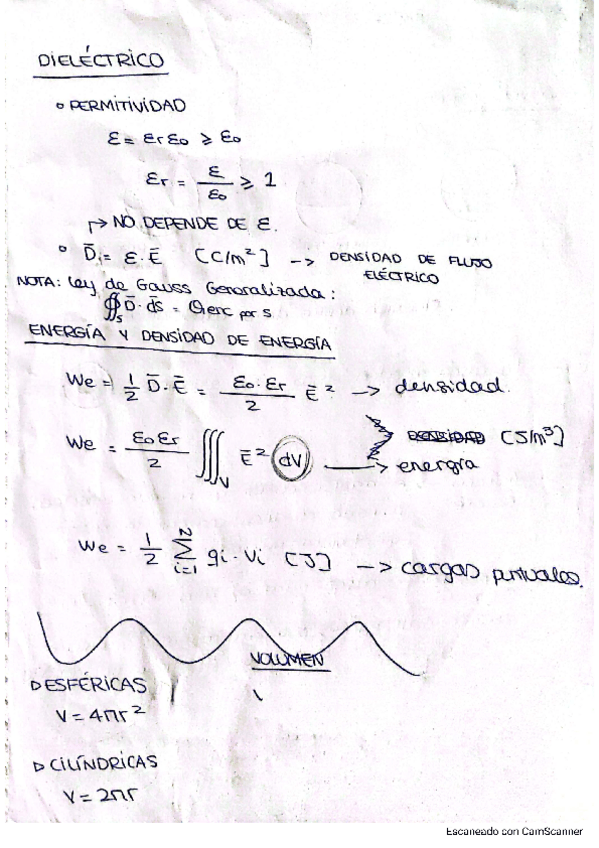 DIELÉCTRICO
° PERMITIVIDAD
ε = εr ε0 ⩾ ε0
εr = ε / ε0 ⩾ 1
↱> NO DEPENDE DE ε.
° D̄ = ε · Ē [C/m²] --> DENSIDAD DE FLUJO
ELÉCTRICO
NOTA: Ley de Gauss Generalizada:
∯s D̄ · ds̄ = Qenc por s
ENERGÍA Y DENSIDAD DE ENERGÍA
We = 1/2 D̄ · Ē = ε0 · εr / 2 Ē² --> densidad.
[J/m³]
We = ε0 εr / 2 ∭V Ē² dV --> energía
We = 1/2 N Σ i=1 qi · Vi [J] --> cargas puntuales.
VOLUMEN
▷ ESFÉRICAS
V = 4πr²
▷ CILÍNDRICAS
V = 2πr
Escaneado con CamScanner